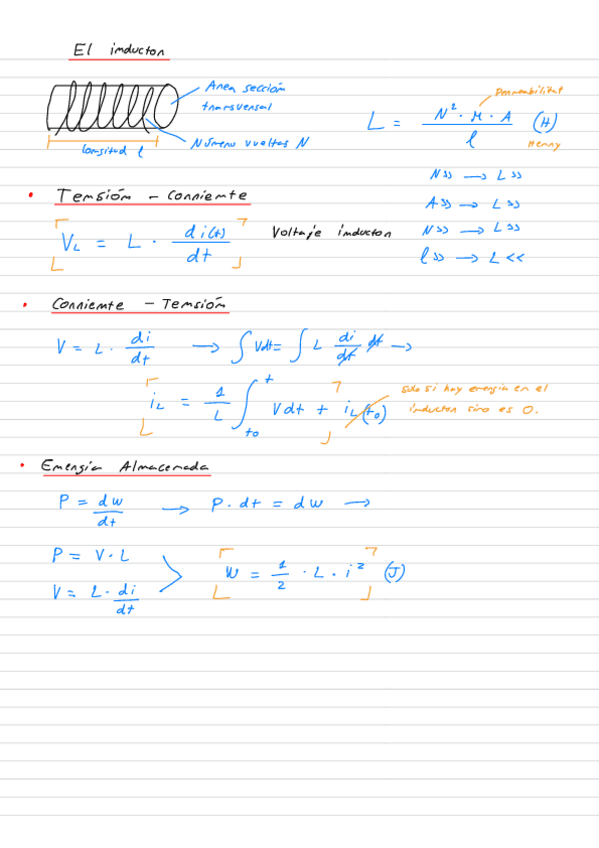 El inductor
Area sección
transversal
Número vueltas N
Longitud l
Permeabilitat
L = N² · M · A / l (H)
Henry
N >> → L >>
A >> → L >>
N >> → L >>
l >> → L <<
• Tensión - Corriente
V_L = L · di(t)/dt Voltaje inductor
• Corriente - Tensión
V = L · di/dt → ∫ Vdt = ∫ L di/dt dt →
i_L = 1/L ∫_{t0}^{t} V dt + i_L(t_0)
Solo si hay energia en el
inductor sino es 0.
• Energia Almacenada
P = dw/dt → P · dt = dw →
P = V · L
V = L · di/dt
W = 1/2 · L · i² (J)